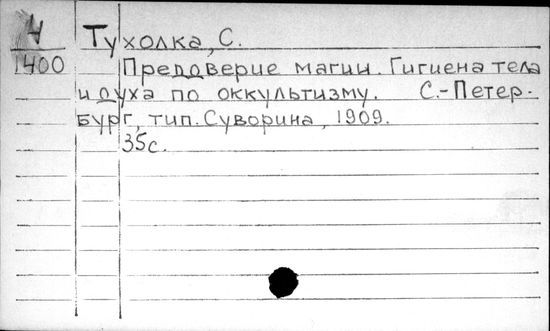 Ч Тухолка, С.
1400 Преддверие магии. Гигиена тела
и духа по оккультизму. С.-Петер-
бург, тип. Суворина, 1909.
35с.